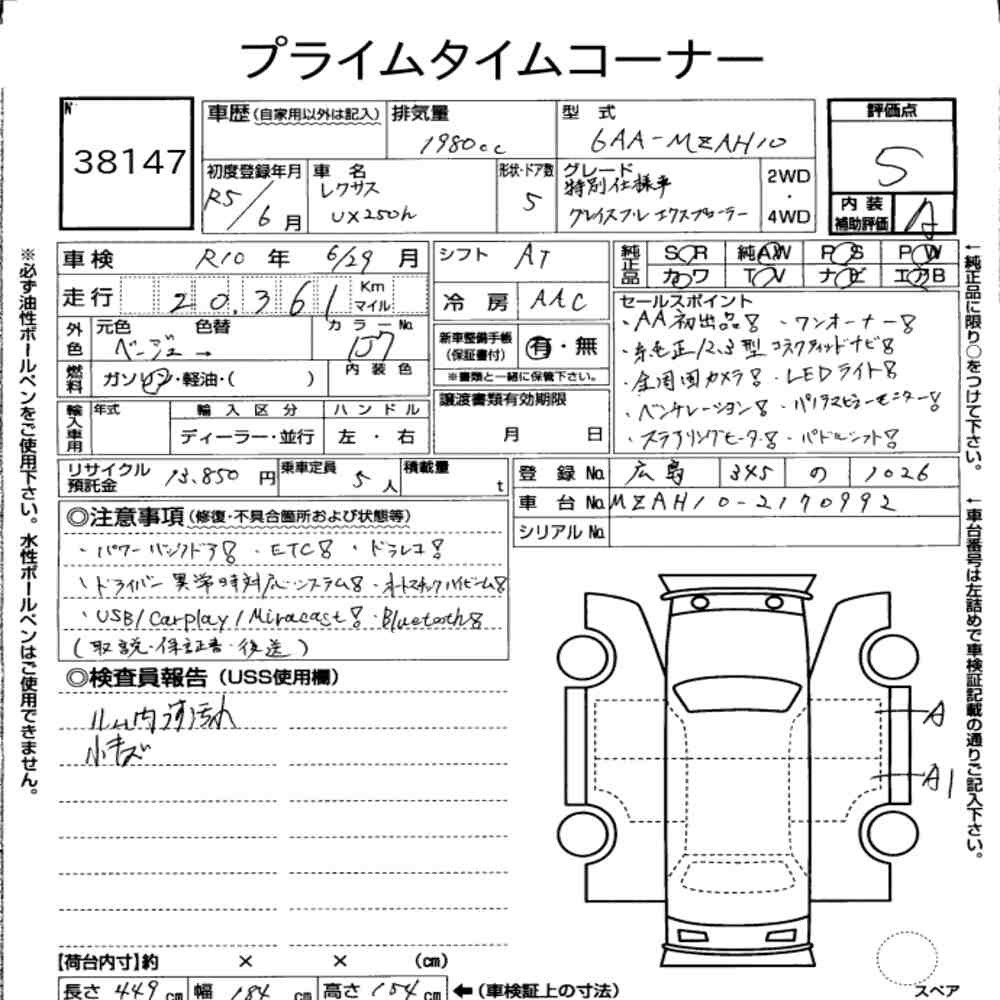 プライムタイムコーナー
№
38147
車歴 (自家用以外は記入)
排気量
1980cc
型 式
6AA-MZAH10
評価点
S
内装
補助評価
A
初度登録年月
R5/6月
車 名
レクサス
UX250h
形状・ドア数
5
グレード
特別仕様車
グレイスフル エクスプローラー
2WD
・
4WD
車検 R10 年 6/29 月
走行 20,361 Km
マイル
シフト AT
冷 房 AAC
純正品
SR 純AW PS PW
カワ TV ナビ エアB
外色
元色 色替
ベージュ →
カラーNo.
157
燃料
ガソリン・軽油・( )
内装色
新車整備手帳
(保証書付)
有・無
※書類と一緒に保管下さい。
セールスポイント
・AA初出品!! ・ワンオーナー!!
・純正12.3型コネクティッドナビ!!
・全周囲カメラ!! ・LEDライト!!
・ベンチレーション!! ・パノラミックビューモニター!!
・ステアリングヒーター!! ・パドルシフト!!
輸入車用
年式
輸入区分
ディーラー・並行
ハンドル
左・右
譲渡書類有効期限
月 日
リサイクル
預託金
13,850 円
乗車定員
5人
積載量
t
登録 No. 広島 345 の 1026
車台 No. MZAH10-2170992
シリアル No.
◎注意事項 (修復・不具合箇所および状態等)
・パワーバックドア!! ・ETC!! ・ドラレコ!!
・ドライバー異常時対応システム!! ・オートマチックハイビーム!!
・USB/Carplay/Miracast!! ・Bluetooth!!
(取説・保証書・後送)
◎検査員報告 (USS使用欄)
ルーム内薄汚れ
小キズ
A
A1
【荷台内寸】約 × × (cm)
長さ 449 cm 幅 184 cm 高さ 154 cm ←(車検証上の寸法)
スペア
※必ず油性ボールペンをご使用下さい。水性ボールペンはご使用できません。
←純正品に限り○をつけて下さい。
←車台番号は左詰めで車検証記載の通りご記入下さい。